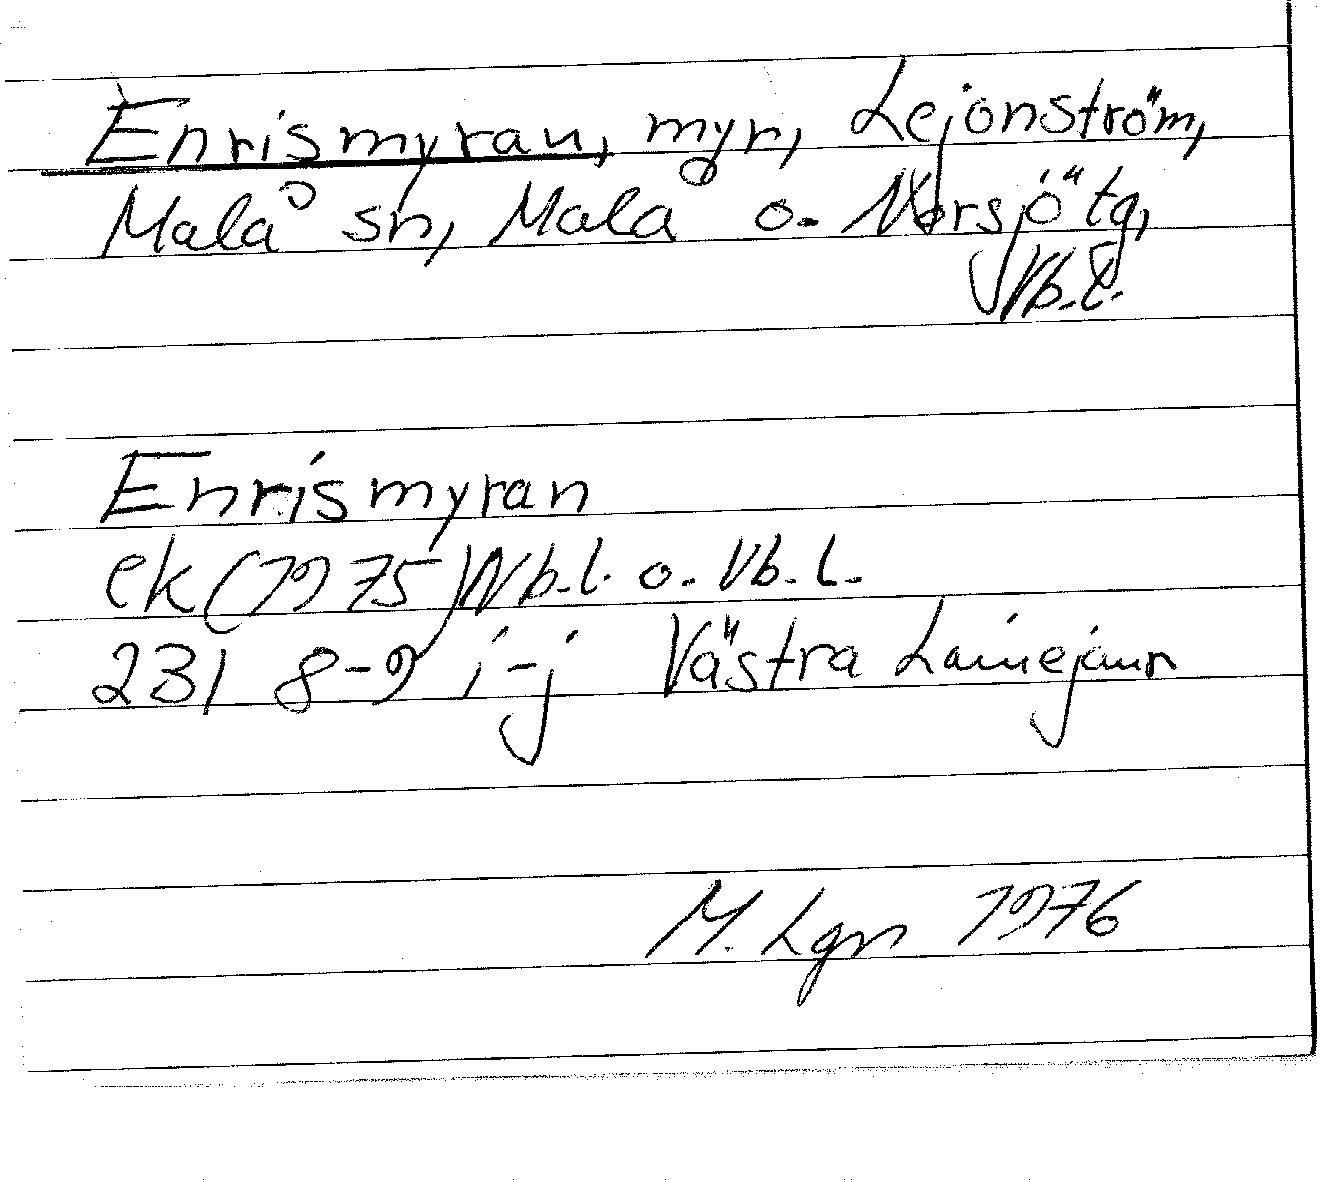 Enrismyran, myr, Lejonström,
Malå sn, Mala o. Norsjö tg,
Vb.l.
Enrismyran
ek (1975) Nb.l. o. Vb. L.
231 8-9 i-j Västra Lainejaur
M. Lgn 1976